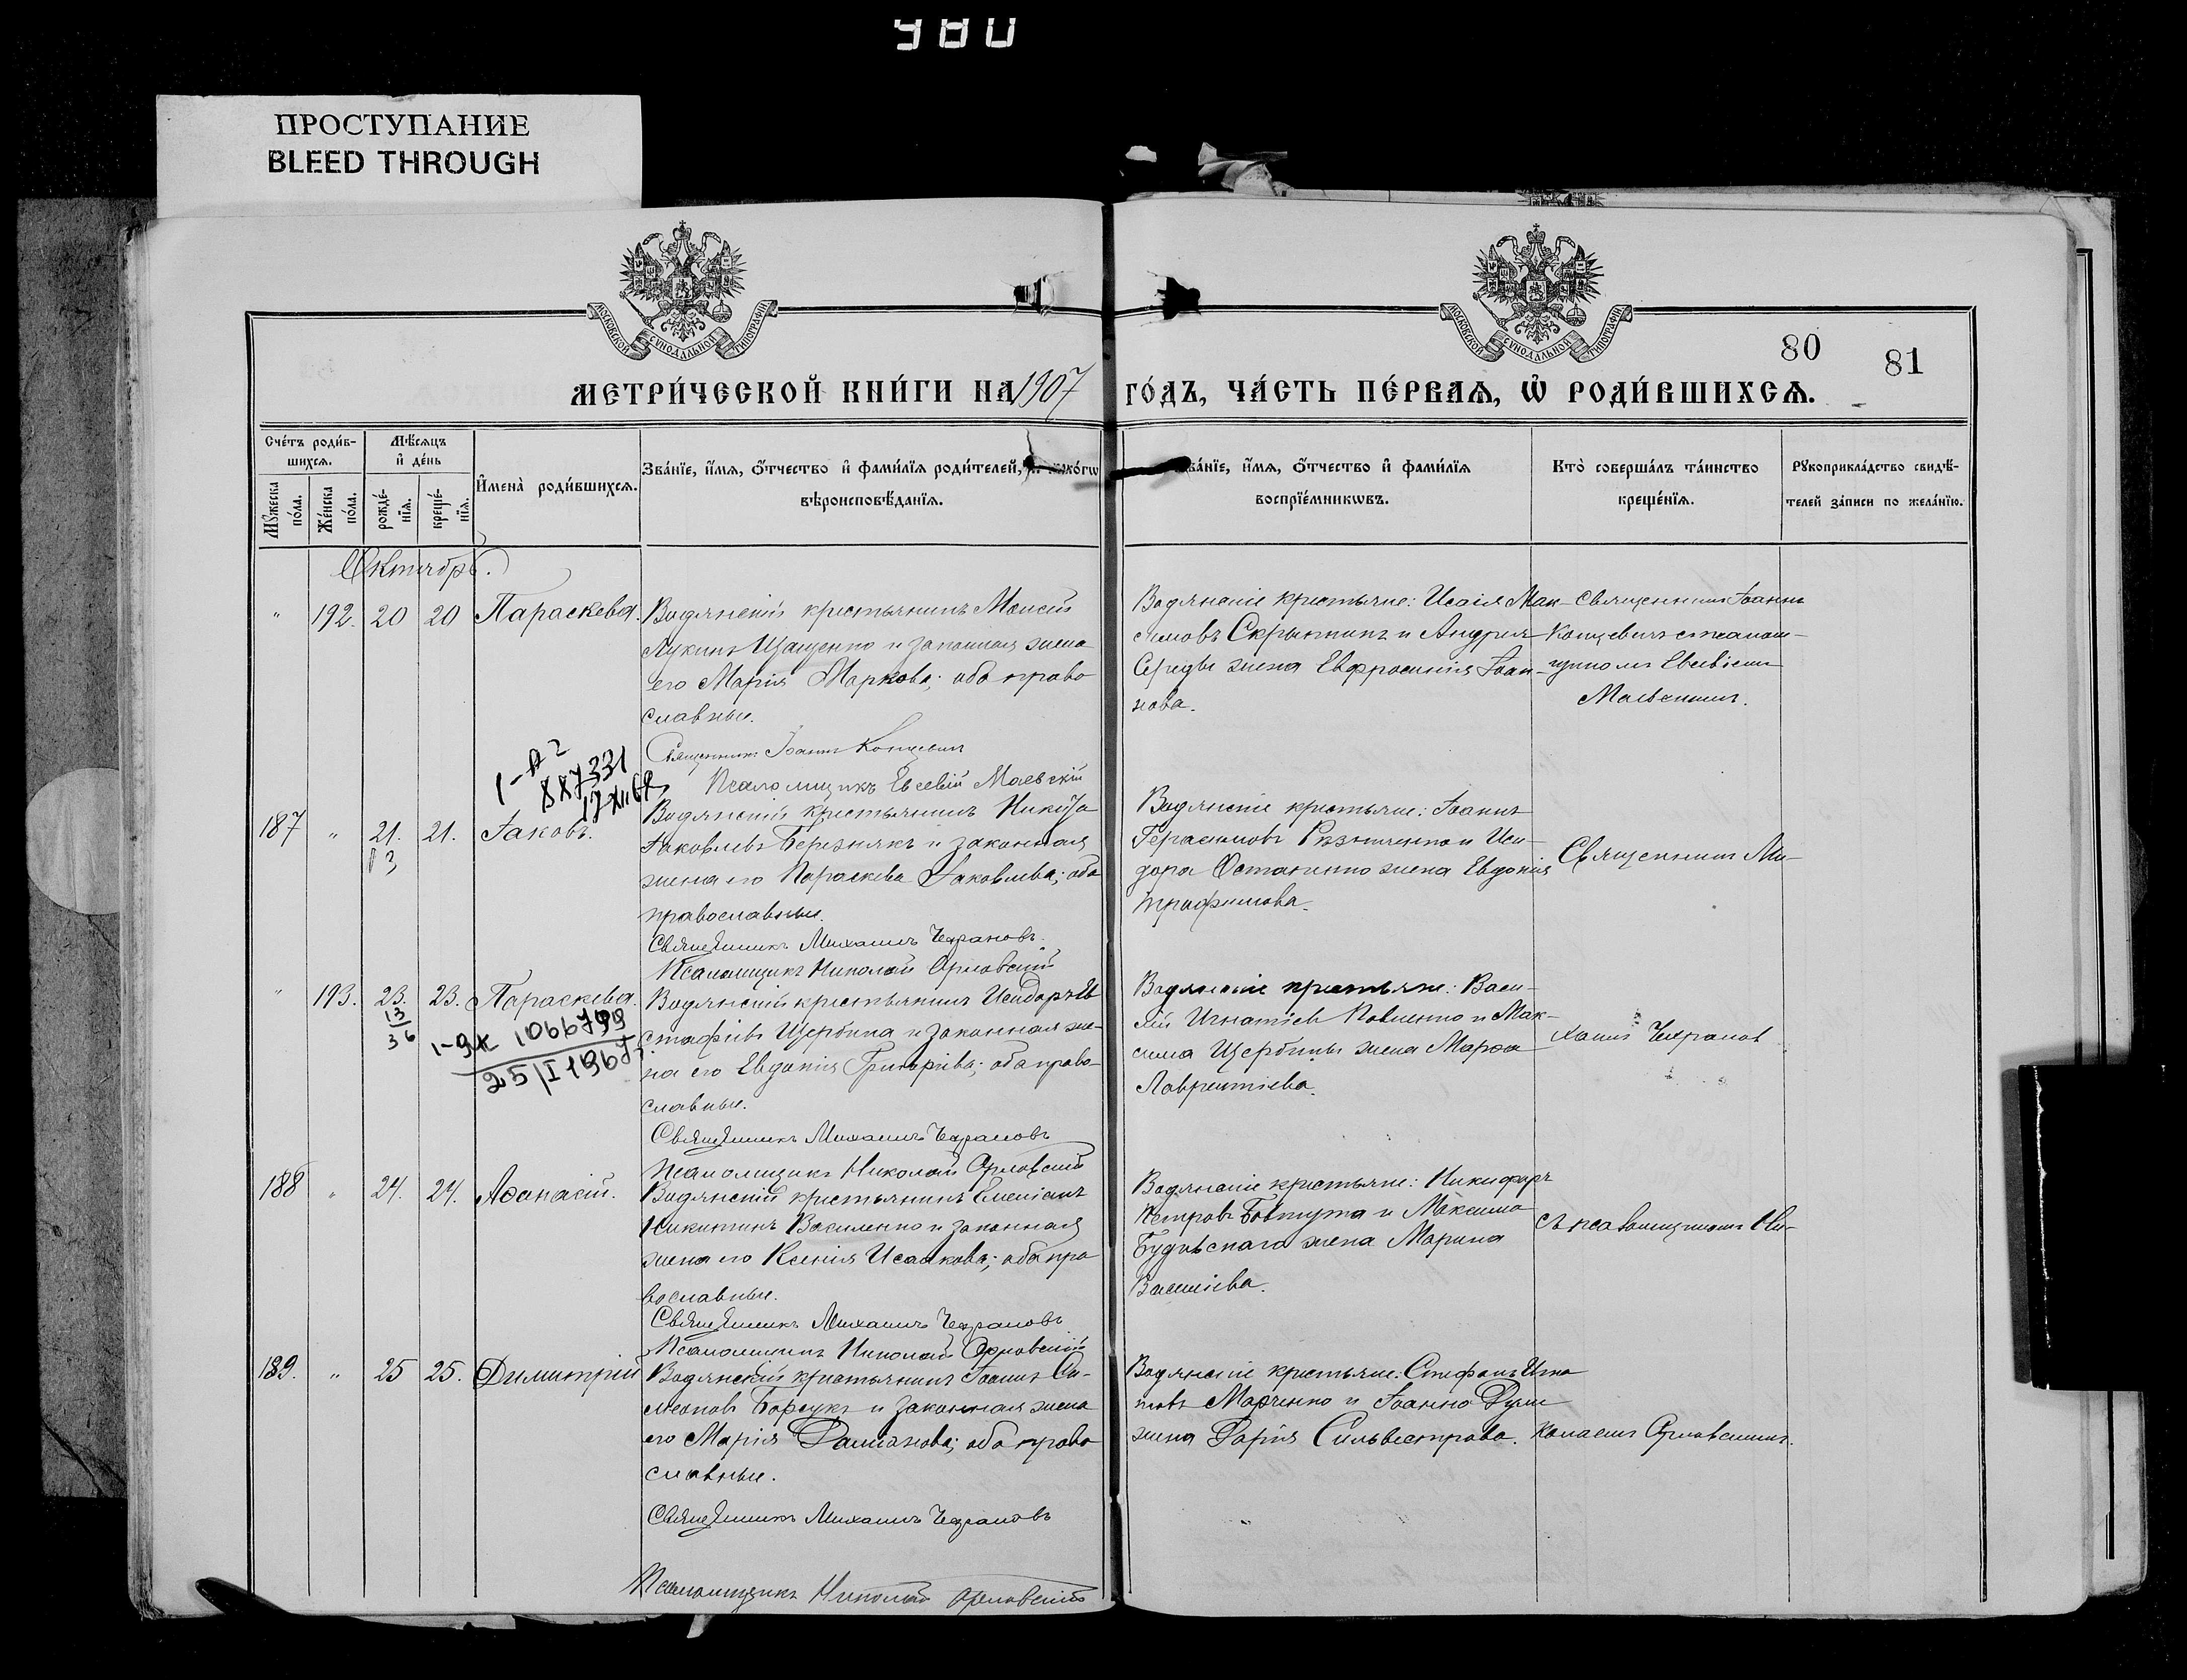 980
ПРОСТУПАНИЕ
BLEED THROUGH
МОСКОВСКОЙ СѴНОДАЛЬНОЙ ТИПОГРАФІИ
МОСКОВСКОЙ СѴНОДАЛЬНОЙ ТИПОГРАФІИ
80
81
МЕТРИ́ЧЕСКОЙ КНИ́ГИ НА 1907 ГО́ДЪ, ЧА́СТЬ ПЕ́РВАѦ, Ѿ РОДИ́ВШИХСѦ.
Сче́тъ роди́в-
шихсѧ.
Мѣсѧцъ
и҆ де́нь
Мꙋ́жеска по́ла.
Же́нска по́ла.
рожде́-
нїѧ.
креще́-
нїѧ.
И҆мена̀ роди́вшихсѧ.
Зва́нїе, и҆́мѧ, ѻ҆́тчество и҆ фами́лїѧ роди́телей, и҆ како́гѡ
вѣроисповѣ́данїѧ.
Зва́нїе, и҆́мѧ, ѻ҆́тчество и҆ фами́лїѧ
воспрїе́мникѡвъ.
Кто̀ соверша́лъ та́инство
креще́нїѧ.
Рꙋкоприкла́дство свидѣ́-
телей за́писи по жела́нїю.
Октябрь.
" 192. 20 20 Параскева.
Водянскій крестьянинъ Моисей
Лукинъ Щащенко и законная жена
его Марія Маркова; оба право
славные.
Священникъ Іоаннъ Концевич
Псаломщикъ Евсевій Маевскій
Водянскіе крестьяне: Исаія Мак-
симовъ Скрыпникъ и Андрея
Середы жена Евфросинія Іоан-
нова.
Священникъ Іоаннъ
Концевичъ с псалом-
щикомъ Евсевіемъ
Маевскимъ.
887331
187 " 21. 21. Іаковъ.
13
Водянскій крестьянинъ Никита
Іаковлевъ Березнякъ и законная
жена его Параскева Іаковлева; оба
православные.
Священникъ Михаилъ Чехрановъ.
Псаломщикъ Николай Орловскій
Водянскіе крестьяне: Іоаннъ
Герасимовъ Рѣзниченко и Иси-
дора Остапенко жена Евдокія
Трофимова.
Священникъ Ми-
" 193. 23. 23. Параскева.
13
36
1066799
25/I 1967г.
Водянскій крестьянинъ Исидоръ Ев
стафіевъ Щербина и законная же-
на его Евдокія Григоріева; оба право-
славные.
Священникъ Михаилъ Чехрановъ
Псаломщикъ Николай Орловскій
Водянскіе крестьяне: Васи-
лій Игнатіевъ Павленко и Мак-
сима Щербины жена Марѳа
Лаврентіева.
хаилъ Чехранов
188 " 24. 24. Аѳанасій.
Водянскій крестьянинъ Емеліанъ
Никитинъ Василенко и законная
жена его Ксенія Исаакова; оба пра
вославные.
Священникъ Михаилъ Чехрановъ
Псаломщикъ Николай Орловскій
Водянскіе крестьяне: Никифоръ
Петровъ Бовтута и Максима
жена Марина
Василіева.
съ псаломщикомъ Ни-
189. " 25 25. Димитрій
Водянскій крестьянинъ Іоаннъ Си-
меоновъ Борсукъ и законная жена
его Марія Даміанова; оба право
славные.
Священникъ Михаилъ Чехрановъ
Псаломщикъ Николай Орловскій
Водянскіе крестьяне: Стефанъ Игна
тіевъ Марченко и Іоанна
жена Дарія Сильвестрова.
колаемъ Орловскимъ.